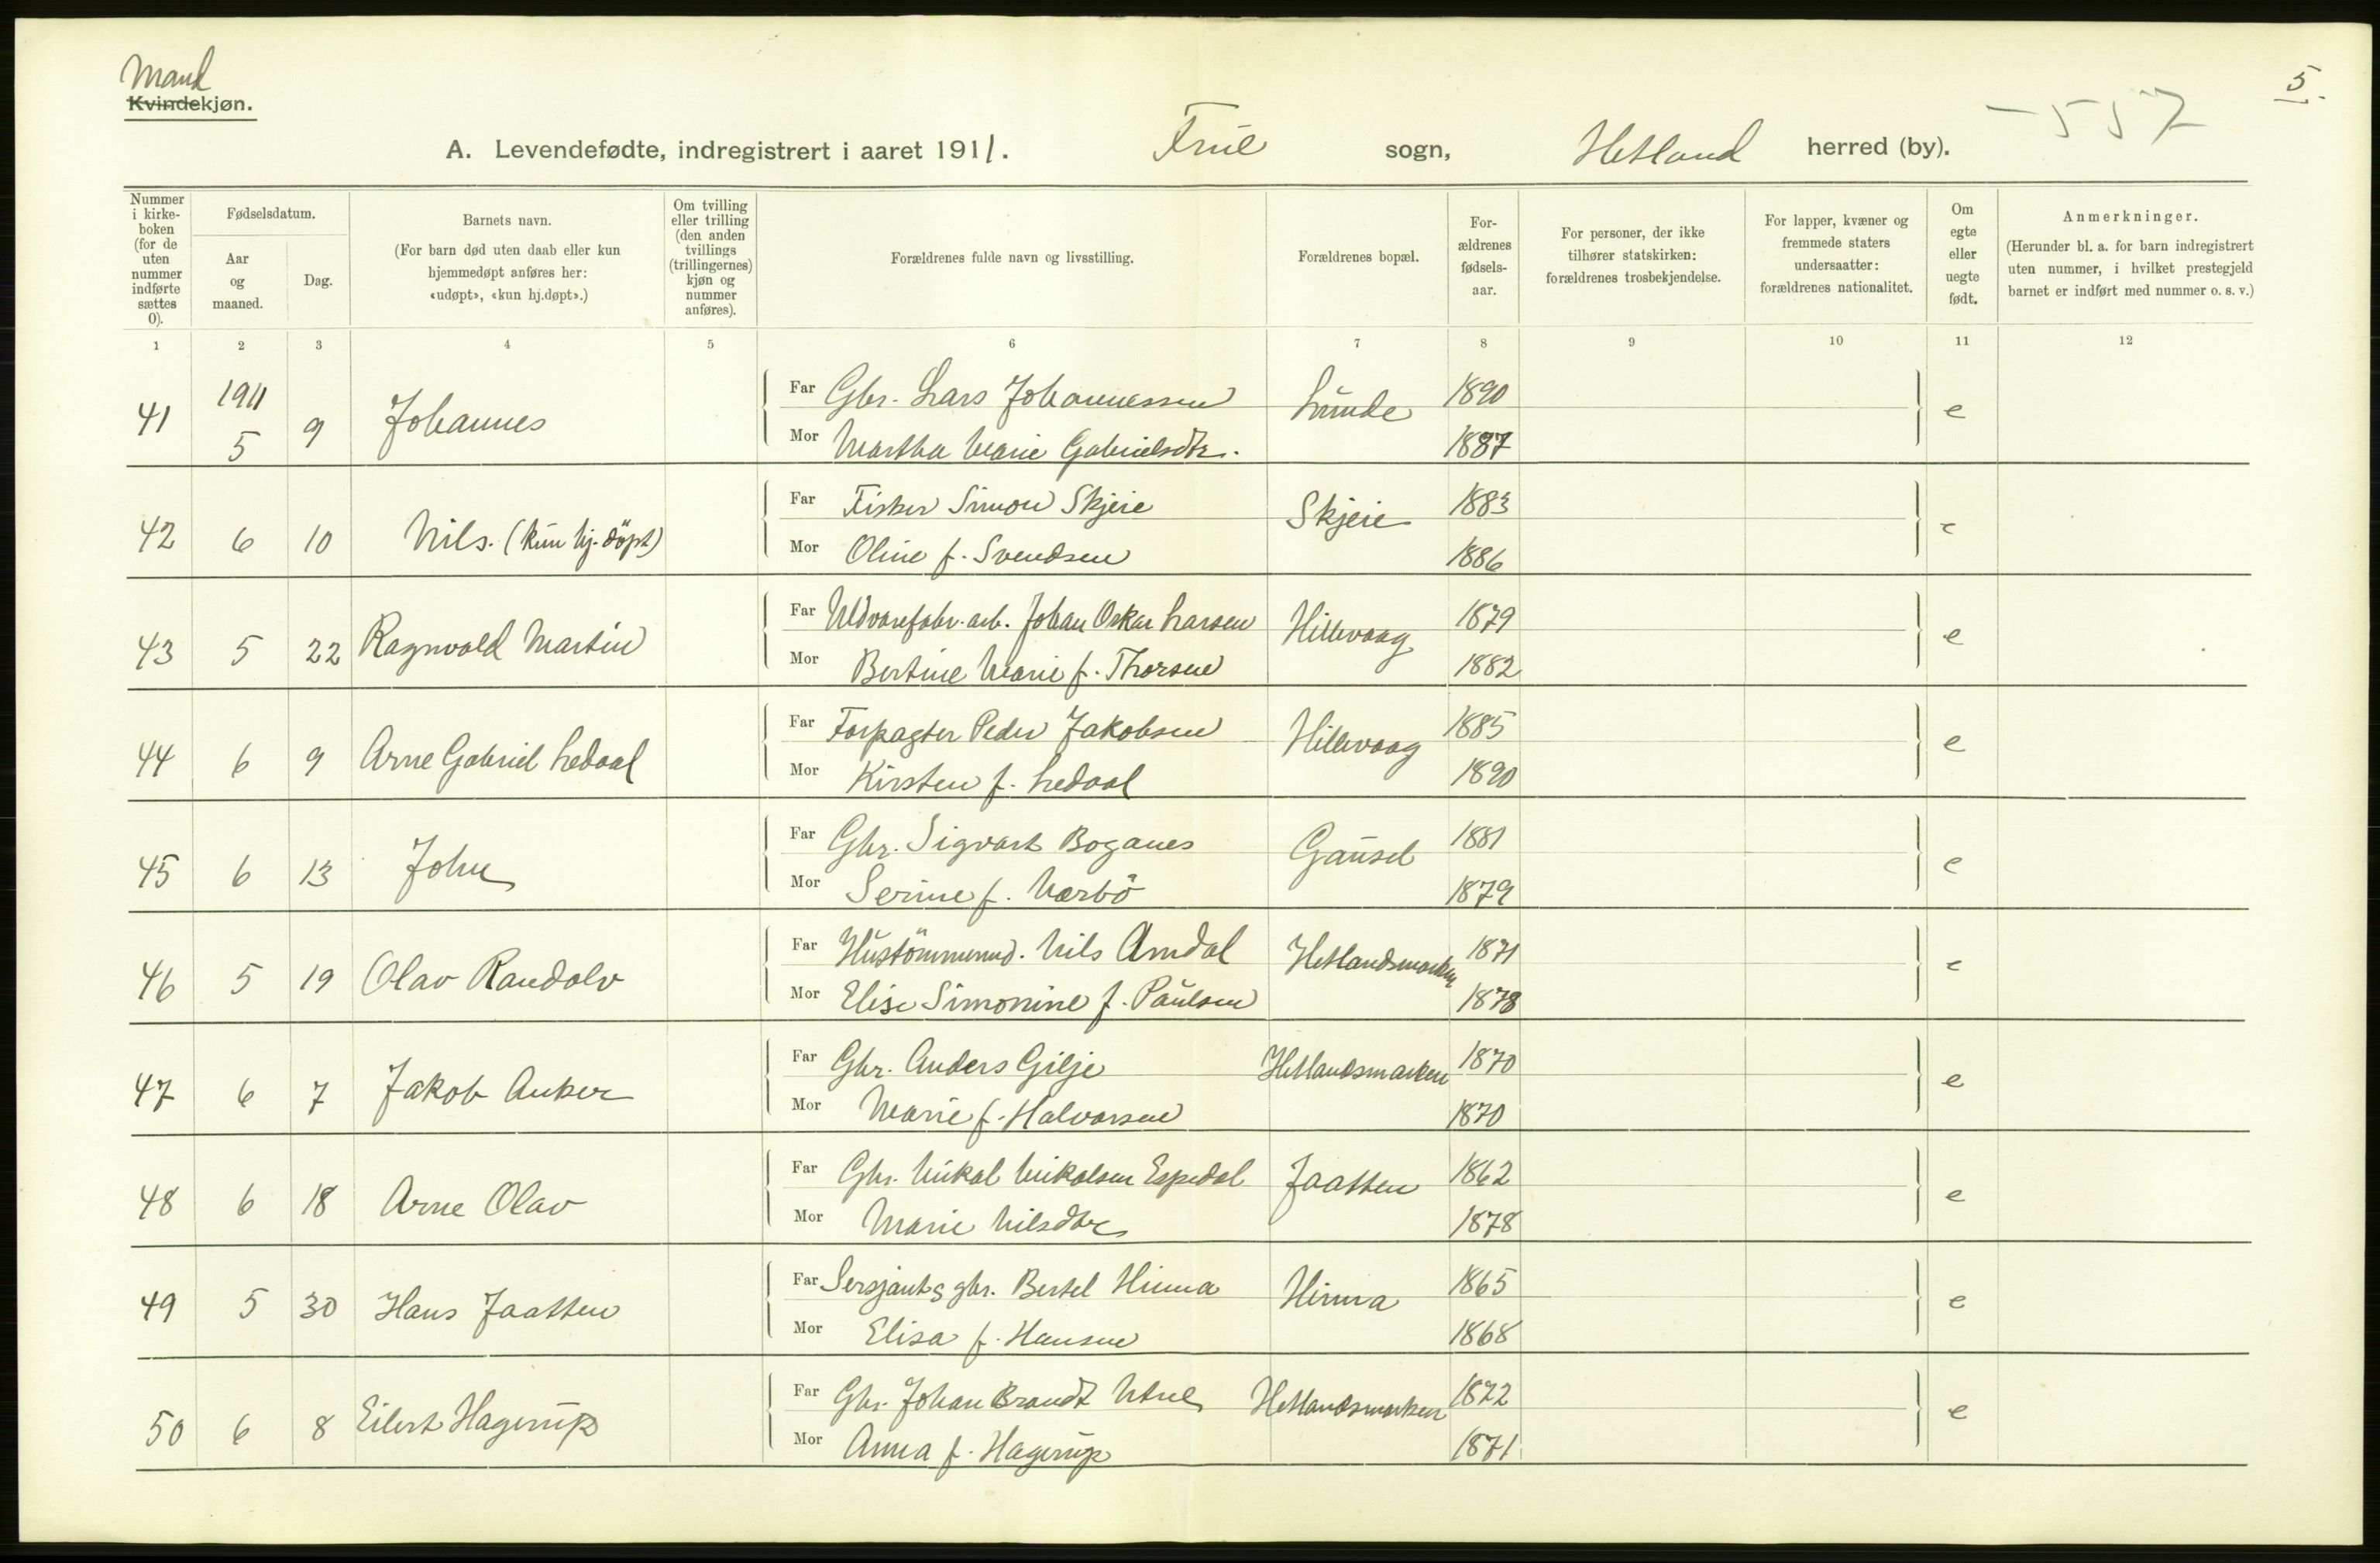 Mand
Kvindekjøn.
5.
-557
A. Levendefødte, indregistrert i aaret 1911. Frue sogn, Hetland herred (by).
Nummer i kirkeboken (for de uten nummer indførte sættes 0).
Fødselsdatum.
Aar og maaned.
Dag.
Barnets navn.
(For barn død uten daab eller kun hjemmedøpt anføres her: «udøpt», «kun hj.døpt».)
Om tvilling eller trilling (den anden tvillings (trillingernes) kjøn og nummer anføres).
Forældrenes fulde navn og livsstilling.
Forældrenes bopæl.
For-ældrenes fødsels-aar.
For personer, der ikke tilhører statskirken: forældrenes trosbekjendelse.
For lapper, kvæner og fremmede staters undersaatter: forældrenes nationalitet.
Om egte eller uegte født.
Anmerkninger.
(Herunder bl. a. for barn indregistrert uten nummer, i hvilket prestegjeld barnet er indført med nummer o. s. v.)
1 2 3 4 5 6 7 8 9 10 11 12
41 1911 5 9 Johannes Far Gbr. Lars Johannessen Lunde 1890 e
Mor Martha Marie Gabrielsdtr. 1887
42 6 10 Nils. (kun hj. döpt) Far Fisker Simon Skjeie Skjeie 1883 e
Mor Oline f. Svendsen 1886
43 5 22 Ragnvald Martin Far Uldvarefabr. arb. Johan Oskar Larsen Hillevaag 1879 e
Mor Bertine Marie f. Thorsen 1882
44 6 9 Arne Gabriel Ledaal Far Forpagter Peder Jakobsen Hillevaag 1885 e
Mor Kirsten f. Ledaal 1890
45 6 13 John Far Gbr. Sigvart Boganes Gausel 1881 e
Mor Serine f. Varbö 1879
46 5 19 Olav Randolv Far Hustömmermd. Nils Amdal Hetlandsmarken 1871 e
Mor Elise Simonine f. Paulsen 1878
47 6 7 Jakob Anker Far Gbr. Anders Gilje Hetlandsmarken 1870 e
Mor Marie f. Halvorsen 1870
48 6 18 Arne Olav Far Gbr. Mikal Mikalsen Espedal Jaatten 1862 e
Mor Marie Nilsdtr 1878
49 5 30 Hans Jaatten Far Sersjant & gbr. Bertel Hinna Hinna 1865 e
Mor Elisa f. Hansen 1868
50 6 8 Eilert Hagerup Far Gbr. Johan Brandt Utne Hetlandsmarken 1872 e
Mor Anna f. Hagerup 1871